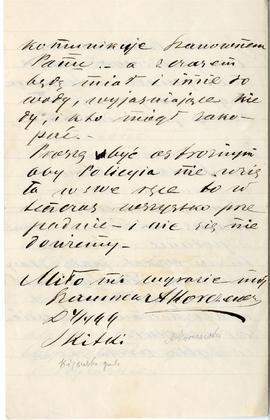 komunikuje Szanownemu
Panu. – a zarazem
będę miał i inne do
wody, wyjaśniające kie
dy, i kto mógł zako-
pać. –
Proszę być ostrożnym
aby Policyja nie wzię
ła w swe ręce bo w
tenczas wszystko prze
padnie – i nic się nie
dowiemy –
Miło mi wyrazić mój
Szacunek
Skitki